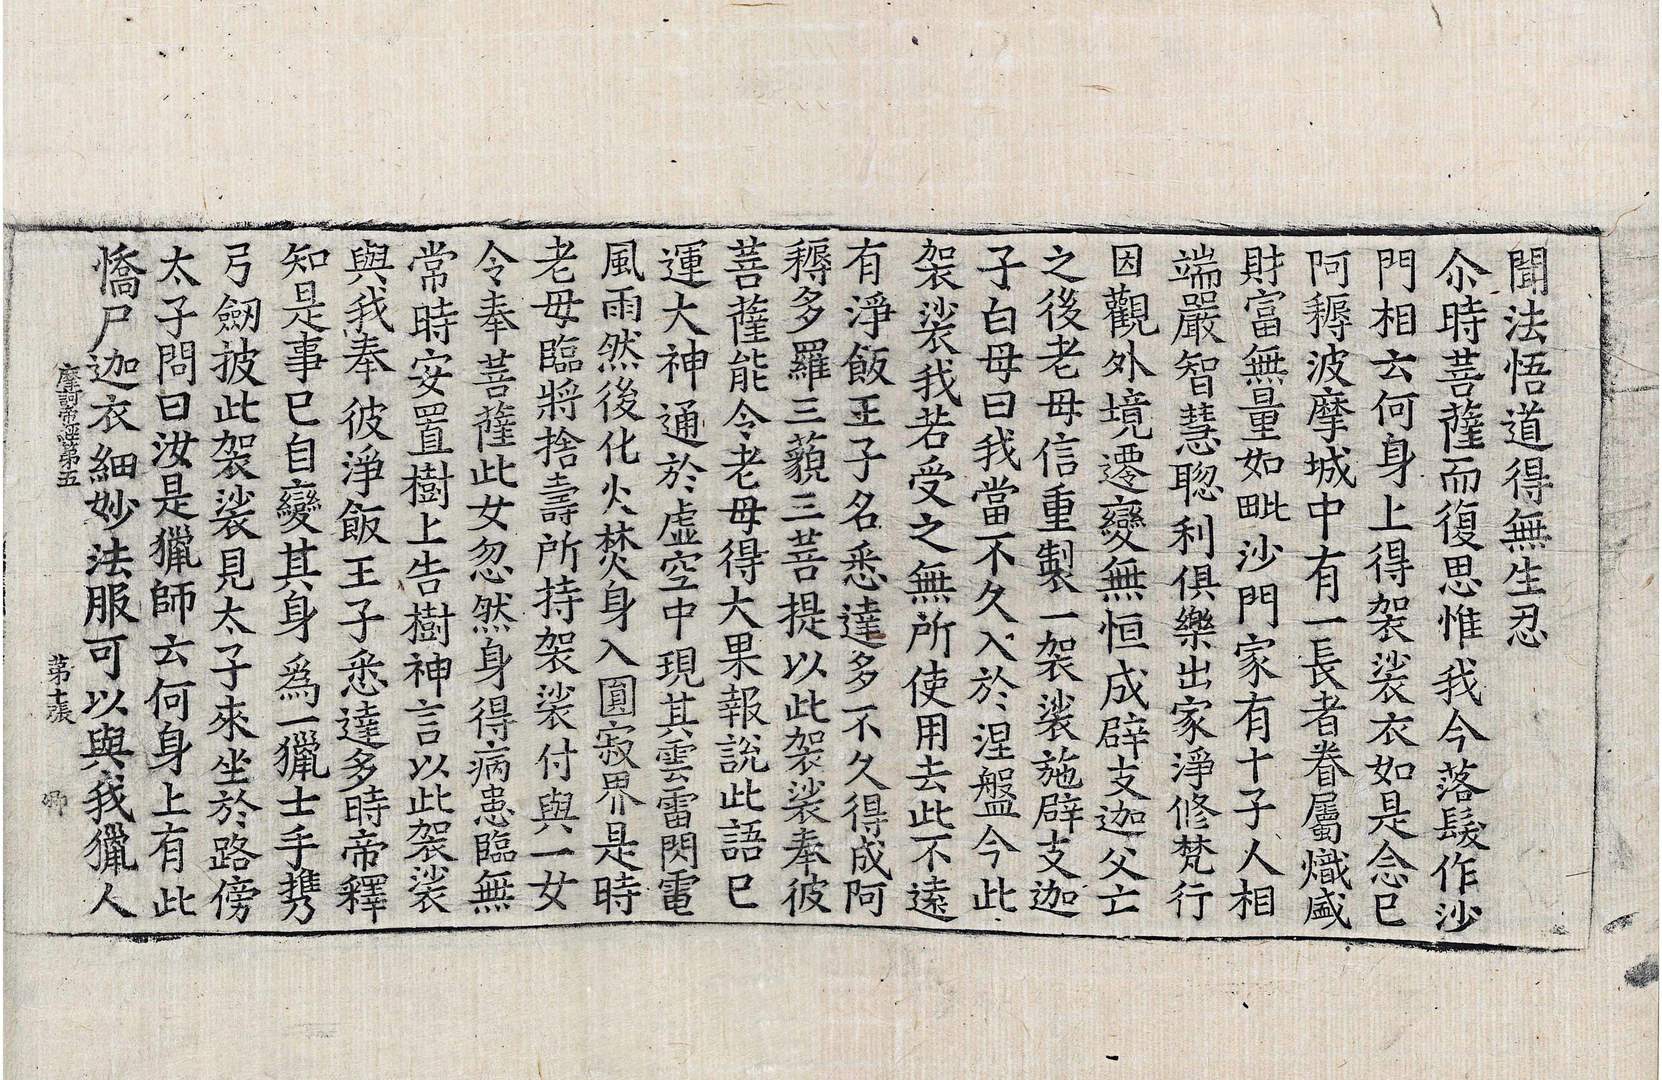 聞法悟道得無生忍
尒時菩薩而復思惟我今落髮作沙
門相云何身上得袈裟衣如是念已
阿耨波摩城中有一長者眷屬熾盛
財富無量如毗沙門家有十子人相
端嚴智慧聡利俱樂出家淨修梵行
因觀外境遷變無恒成辟支迦父亡
之後老母信重製一袈裟施辟支迦
子白母曰我當不久入於涅盤今此
袈裟我若受之無所使用去此不遠
有淨飯王子名悉達多不久得成阿
耨多羅三藐三菩提以此袈裟奉彼
菩薩能令老母得大果報說此語已
運大神通於虛空中現其雲雷閃電
風雨然後化火焚身入圓寂界是時
老母臨將捨壽所持袈裟付與一女
令奉菩薩此女忽然身得病患臨無
常時安置樹上告樹神言以此袈裟
與我奉彼淨飯王子悉達多時帝釋
知是事已自變其身爲一獵士手攜
弓劒披此袈裟見太子來坐於路傍
太子問曰汝是獵師云何身上有此
憍尸迦衣細妙法服可以與我獵人
摩訶帝經第五 第十張 卿